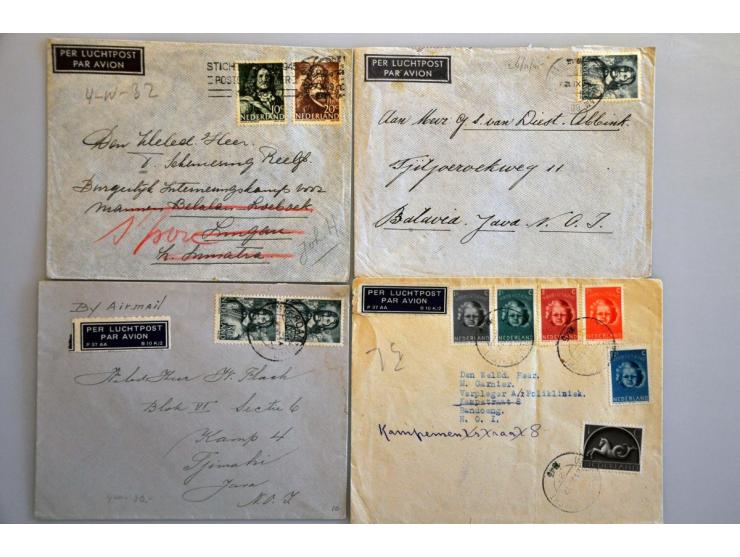 PER LUCHTPOST
PAR AVION
4-W-32
STICH
POSTC
10c
NEDERLAND
20c
NEDERLAND
Den Weled. Heer.
Schemering Reelfs.
Burgerlijk Interneeringskamp voor
mannen Belalau Loeboek
Lingau
Z. Sumatra
PER LUCHTPOST
PAR AVION
Aan Mevr G. J. van Diest. Abbink.
Tjitjoeroekweg 11
Batavia. Java N. O. I.
By Airmail
PER LUCHTPOST
PAR AVION
P 37 AA B 10 K/2
Blok VI Sectie 6
Kamp 4
Tjimahi
Java
N.O.I
10
PER LUCHTPOST
PAR AVION
P 37 AA B 10 K/2
NEDERLAND
NEDERLAND
NEDERLAND
NEDERLAND
NEDERLAND
NEDERLAND
Den WelEd. Heer.
M. Garnier.
Verpleger A/r Polikliniek.
Kampstraat 8
Bandoeng.
N. O. I.